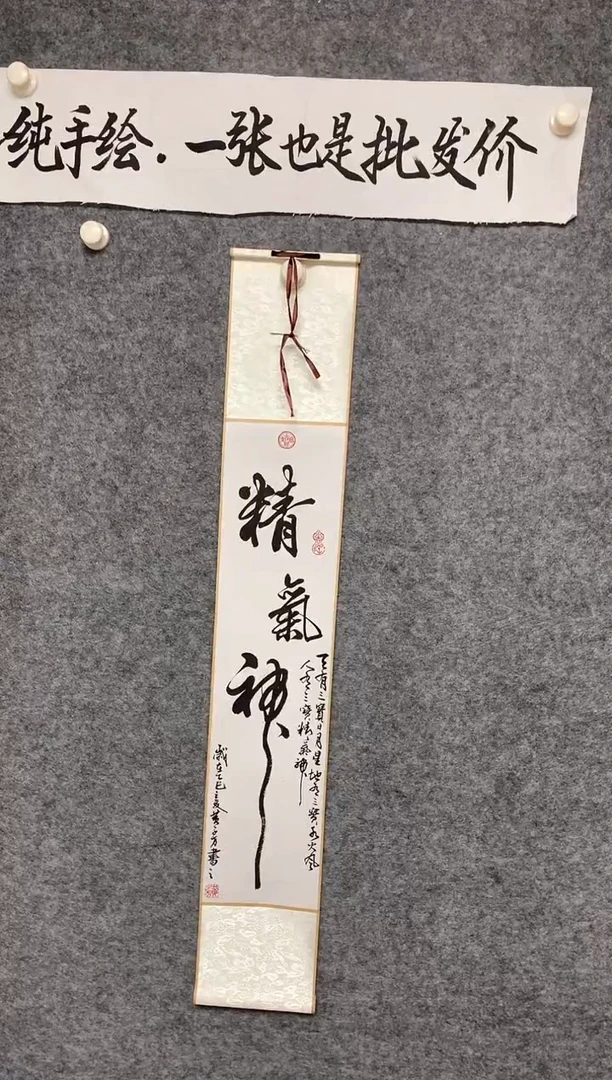 纯手绘.一张也是批发价
精氣神
天有三寶日月星地有三寶水火風
人有三寶精氣神
歲在乙巳夏黃立方書